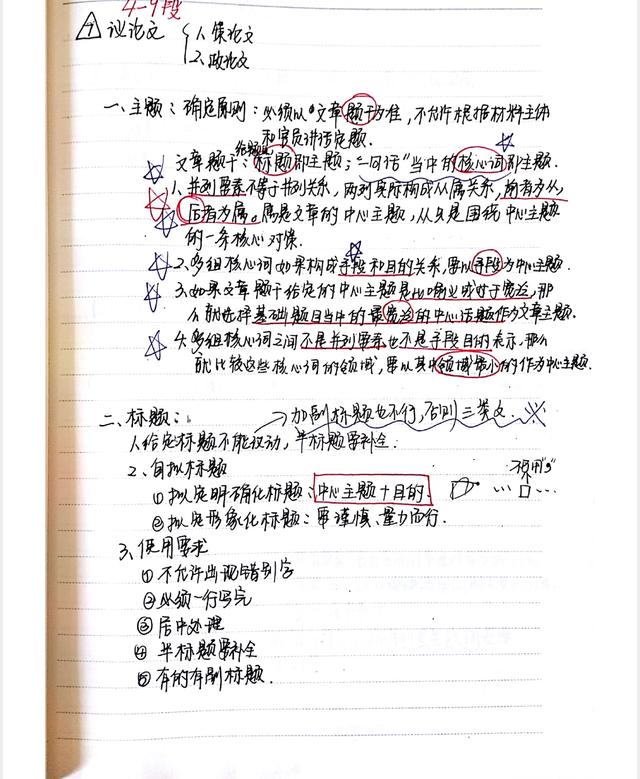 4-9段
7 议论文 { 1. 策论文
2. 政论文
一、主题：确定原则：必须以文章题干为准，不允许根据材料主体
和官员讲话定题.
给标题
文章题干：标题即主题；"一句话"当中的核心词即主题.
1. 并列要素不等于并列关系，两列实际构成从属关系，前者为从，
后者为属。属是文章的中心主题，从只是围绕中心主题
的一条核心对策.
2. 多组核心词如果构成手段和目的关系，要以手段为中心主题.
3. 如果文章题干给定的中心主题是 过于宽泛，那
么就选择基础题目当中的最宽泛的中心话题作为文章主题.
4. 多组核心词之间不是并列要素也不是手段目的表示，那么
就比较这些核心词的领域，要以其中领域最小的作为中心主题.
二、标题： → 加副标题也不行，否则三类文. ※
1. 给定标题不能改动，半标题要补全.
2. 自拟标题 不使用","
① 拟定明确化标题：中心主题+目的. …□…
② 拟定形象化标题：要谨慎、量力而行.
3. 使用要求
① 不允许出现错别字
② 必须一行写完
③ 居中处理
④ 半标题要补全
⑤ 有的有副标题.